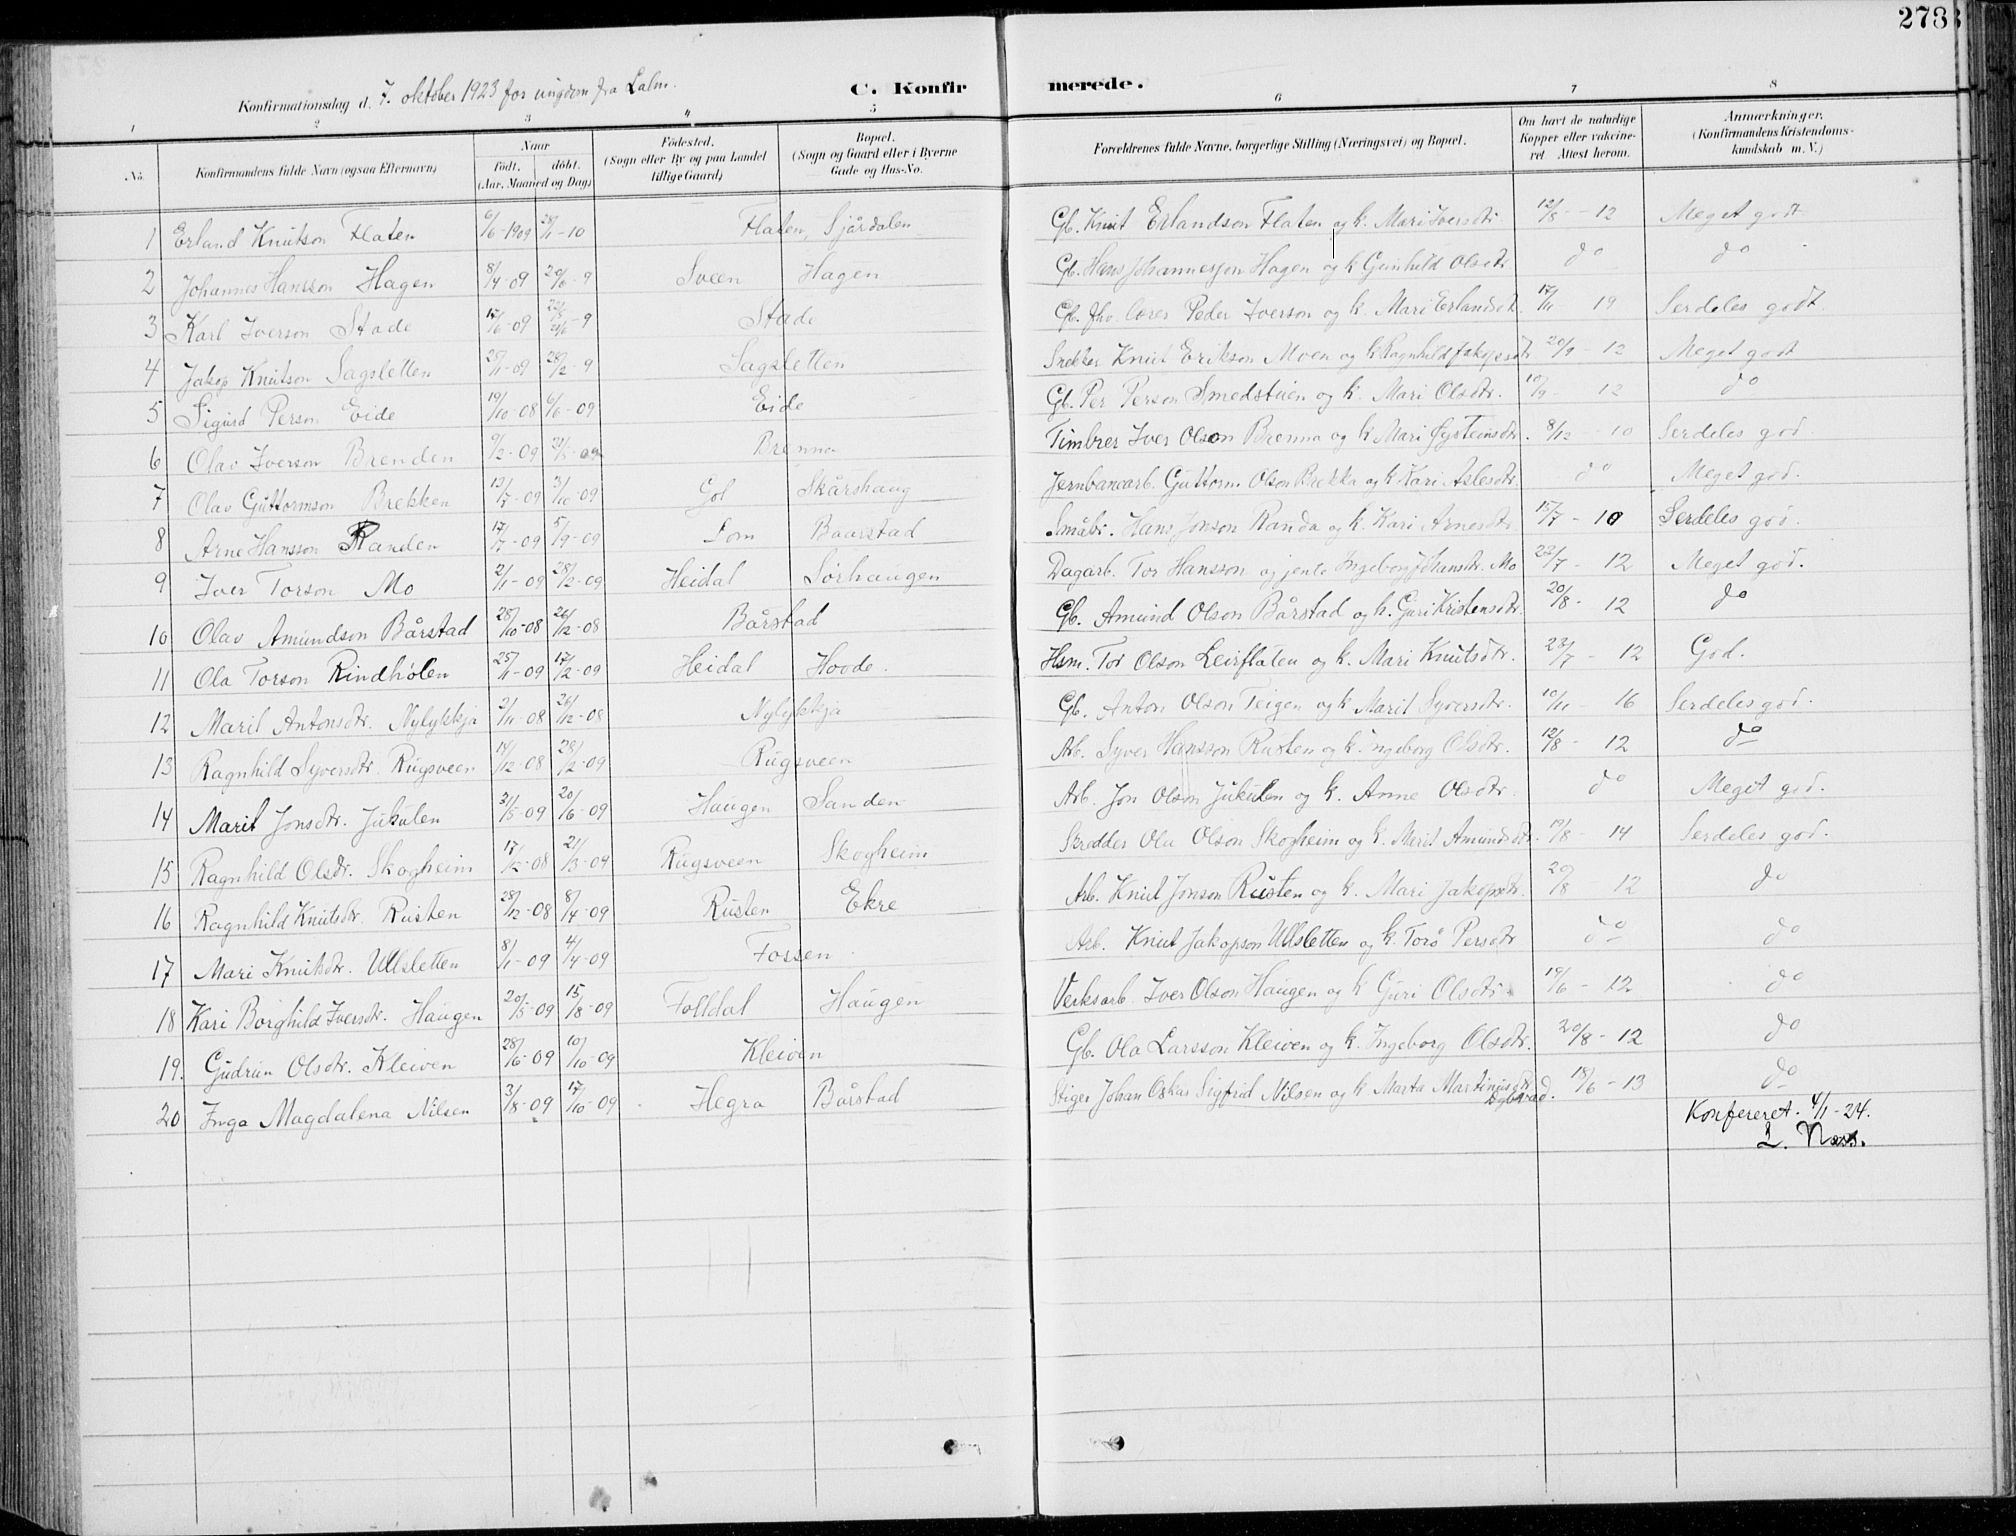 273
Konfirmationsdag d. 7. oktober 1923 for ungdom fra Lalm.
C. Konfirmerede.
1 2 3 4 5 6 7 8
No. Konfirmandens fulde Navn (ogsaa Efternavn) Naar födt. döbt. (Aar, Maaned og Dag) Födested. (Sogn eller By og paa Landet tillige Gaard) Bopæl. (Sogn og Gaard eller i Byerne Gade og Hus-No. Forældrenes fulde Navne, borgerlige Stilling (Næringsvei) og Bopæl. Om havt de naturlige Kopper eller vakcineret Attest herom. Anmærkninger. (Konfirmandens Kristendomskundskab m. V.)
1 Erland Knutson Flaten 6/6-1909 28/1-10 Flaten, Sjårdalen Gb. Knut Erlandson Flaten og k. Mari Iversdtr. 12/8-12 Meget godt
2 Johannes Hansson Hagen 8/4-09 20/6-9 Sveen Hagen Gb. Hans Johannesson Hagen og k Gunhild Olsdtr do do
3 Karl Iverson Stade 17/6-09 Stade Gb. Peder Iverson og k. Mari Erlandsdt. 17/11-19 Serdeles godt.
4 Jakop Knutson Sagsletten 25/1-09 28/2-9 Sagsletten Knut Erikson Moen og k Ragnhild Jakopsdtr 20/9-12 Meget godt
5 Sigurd Person Eide 19/10-08 6/6-09 Eide Gb. Per Person Smedstuen og k. Mari Olsdtr. 10/9-12 do
6 Olav Iverson Brenden 9/2-09 31/5-09 Brenna Timbrer Iver Olson Brenna og k Mari Øysteinsdtr. 8/12-10 Serdeles god.
7 Olav Guttormson Brekken 13/7-09 3/10-09 Gol Skårshaug Jernbanearb. Guttorm Olson Brekka og k Kari Aslesdtr. do Meget god.
8 Arne Hansson Randen 17/7-09 5/9-09 Lom Baarstad Småbr. Hans Jonson Randa og k. Kari Arnesdtr 15/7-10 Serdeles god.
9 Iver Torson Mo 2/1-09 28/2-09 Heidal Sørhaugen Dagarb. Tor Hansson og jente Ingeborg Johansdtr. Mo 22/7-12 Meget god.
10 Olav Amundson Bårstad 28/10-08 26/12-08 Bårstad Gb. Amund Olson Bårstad og k. Guri Kristensdtr. 20/8-12 do
11 Ola Torson Rindhølen 25/1-09 17/2-09 Heidal Hovde. Hsm. Tor Olson Leirflaten og k. Mari Knutsdtr. 23/7-12 God.
12 Marit Antonsdtr. Nylykkja 2/11-08 26/12-08 Nylykkja Gb. Anton Olson Teigen og k Marit Syversdtr. 10/11-16 Serdeles god.
13 Ragnhild Syversdtr. Rugsveen 14/12-08 28/2-09 Rugsveen Arb. Syver Hansson Rusten og k. Ingeborg Olsdtr. 12/8-12 do
14 Marit Jonsdtr. Jukulen 31/5-09 20/6-09 Haugen Sanden Arb. Jon Olson Jukulen og k. Anne Olsdtr. do Meget god.
15 Ragnhild Olsdtr. Skogheim 17/12-08 21/3-09 Rugsveen Skogheim Skredder Ola Olson Skogheim og k. Marit Amundsdtr. 19/8-14 Serdeles god.
16 Ragnhild Knutsdtr. Rusten 28/12-08 8/4-09 Rusten Ekre Arb. Knut Jonson Rusten og k. Mari Jakopsdtr. 20/8-12 do
17 Mari Knutsdtr. Ullsletten 8/1-09 4/4-09 Fossen Arb. Knut Jakopson Ullsletten og k. Torø Persdtr do do
18 Kari Borghild Iversdtr. Haugen 20/5-09 15/8-09 Folldal Haugen Verksarb. Iver Olson Haugen og k Guri Olsdtr. 19/6-12 do
19. Gudrun Olsdtr. Kleiven 28/6-09 10/10-09 Kleiven Gb. Ola Larsson Kleiven og k. Ingeborg Olsdtr. 20/8-12 do
20 Inga Magdalena Nilsen 3/8-09 17/10-09 Hegra Bårstad Stiger Johan Oskar Sigfrid Nilsen og k Marta Martinusdtr 18/6-13 do
Konfereret. 4/1-24.
L. Næss.